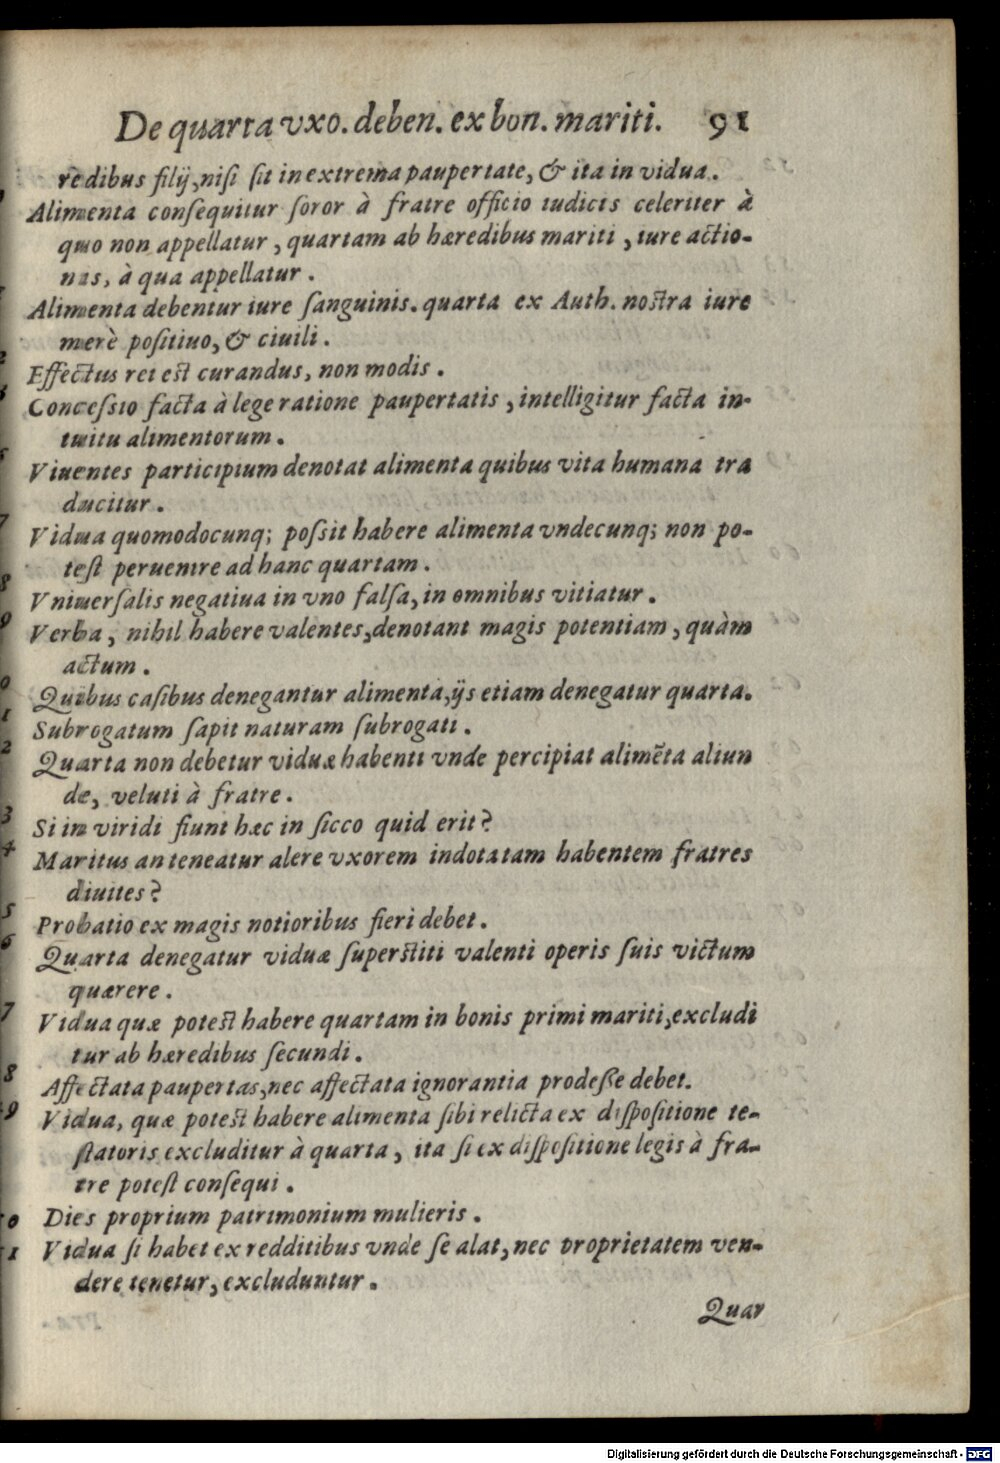 De quarta vxo. deben. ex bon. mariti. 91
redibus filij, nisi sit in extrema paupertate, & ita in vidua.
Alimenta consequitur soror à fratre officio iudicis celeriter à
quo non appellatur, quartam ab hæredibus mariti, iure actio-
nas, à qua appellatur.
Alimenta debentur iure sanguinis. quarta ex Auth. nostra iure
merè positiuo, & ciuili.
Effectus rei est curandus, non modis.
Concessio facta à lege ratione paupertatis, intelligitur facta in-
tuitu alimentorum.
Viuentes participium denotat alimenta quibus vita humana tra
ducitur.
Vidua quomodocunq; possit habere alimenta vndecunq; non po-
test peruenire ad hanc quartam.
Vniuersalis negatiua in vno falsa, in omnibus vitiatur.
Verba, nihil habere valentes, denotant magis potentiam, quàm
actum.
Quibus casibus denegantur alimenta, ijs etiam denegatur quarta.
Subrogatum sapit naturam subrogati.
Quarta non debetur viduæ habenti vnde percipiat alimẽta aliun
de, veluti à fratre.
Si in viridi fiunt hæc in sicco quid erit?
Maritus an teneatur alere vxorem indotatam habentem fratres
diuites?
Probatio ex magis notioribus fieri debet.
Quarta denegatur viduæ superstiti valenti operis suis victum
quærere.
Vidua quæ potest habere quartam in bonis primi mariti, excludi
tur ab hæredibus secundi.
Affectata paupertas, nec affectata ignorantia prodeße debet.
Vidua, quæ potest habere alimenta sibi relicta ex dispositione te-
statoris excluditur à quarta, ita si ex dispositione legis à fra-
tre potest consequi.
Dies proprium patrimonium mulieris.
Vidua si habet ex redditibus vnde se alat, nec proprietatem ven-
dere tenetur, excluduntur.
Quar
Digitalisierung gefördert durch die Deutsche Forschungsgemeinschaft - DFG